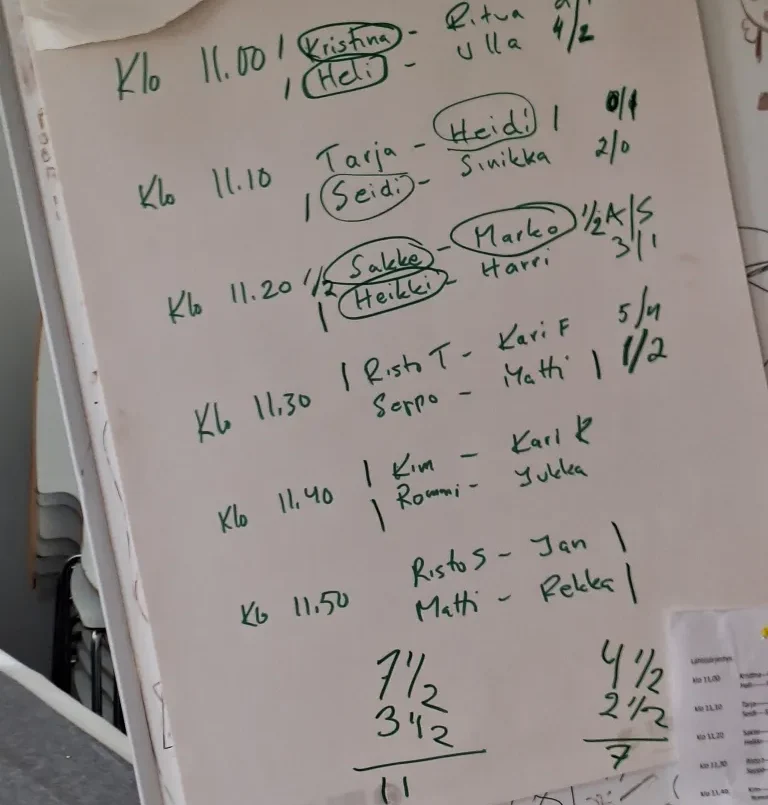 Klo 11.00 1 Kristina - Ritva
1 Heli - Ulla 4/2
Klo 11.10 Tarja - Heidi 1 0/1
1 Seidi - Sinikka 2/0
Klo 11.20 1/2 Sakke - Marko 1/2 A/S
1 Heikki - Harri 3/1
Klo 11.30 1 Risto T - Kari F 5/4
Seppo - Matti 1 1/2
Klo 11.40 1 Kim - Kari K
1 Rommi - Jukka
Klo 11.50 Risto S - Jan 1
Matti - Pekka 1
7 1/2 4 1/2
3 1/2 2 1/2
11 7
Klo 11,00
Klo 11,10
Klo 11,20
Klo 11,30
Klo 11,40